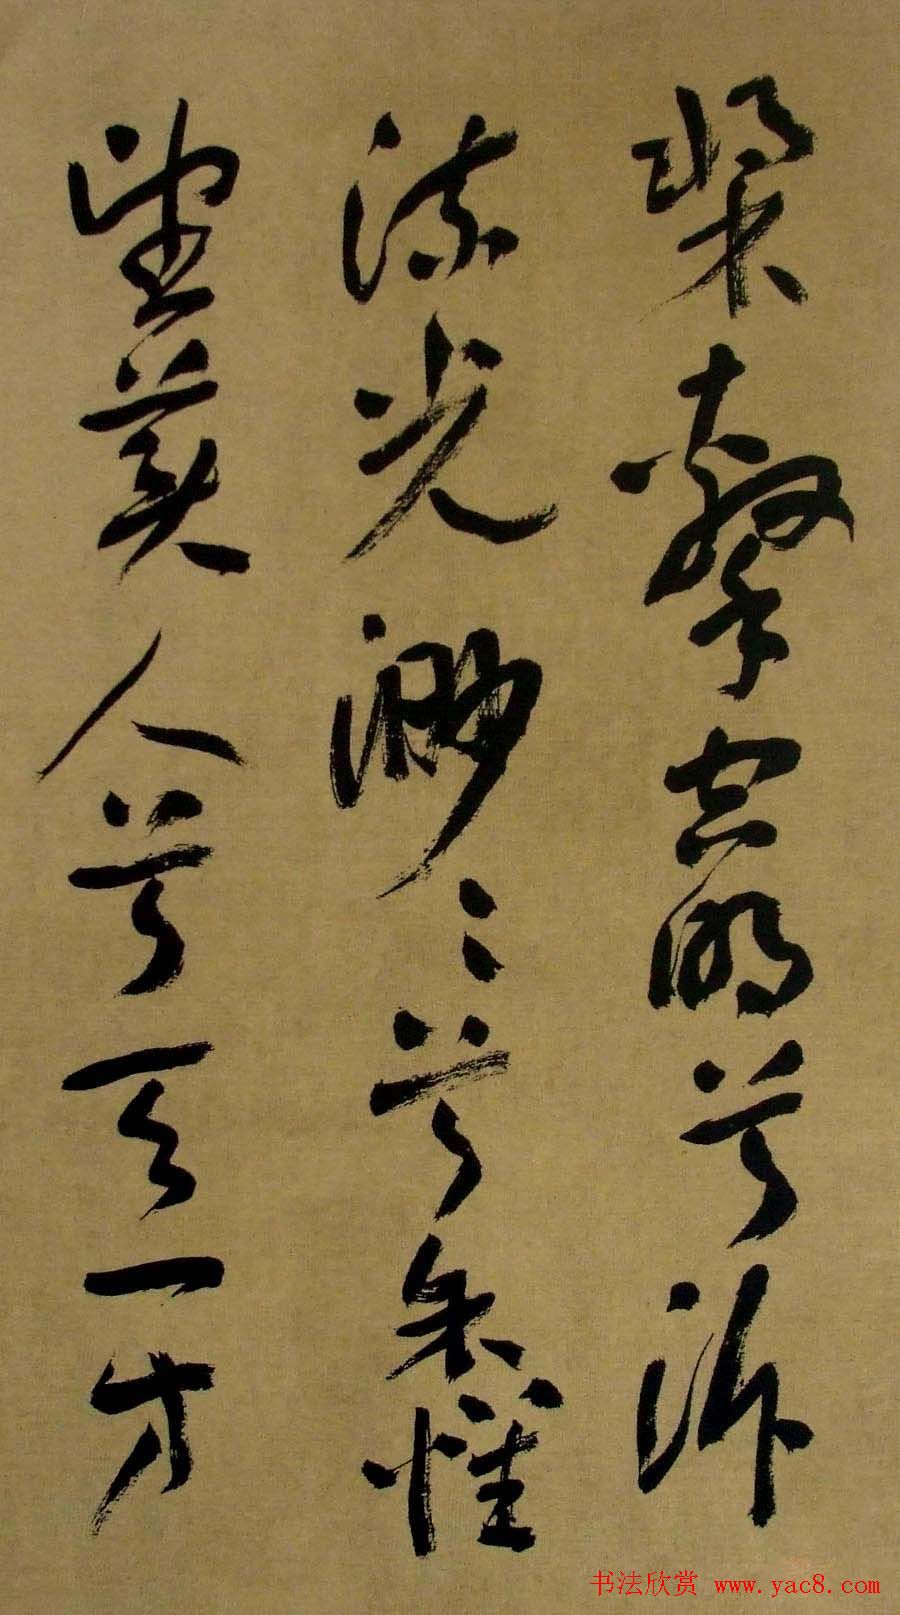 槳擊空明兮泝
流光渺〻兮余懷
望美人兮天一方
书法欣赏 www.yac8.com